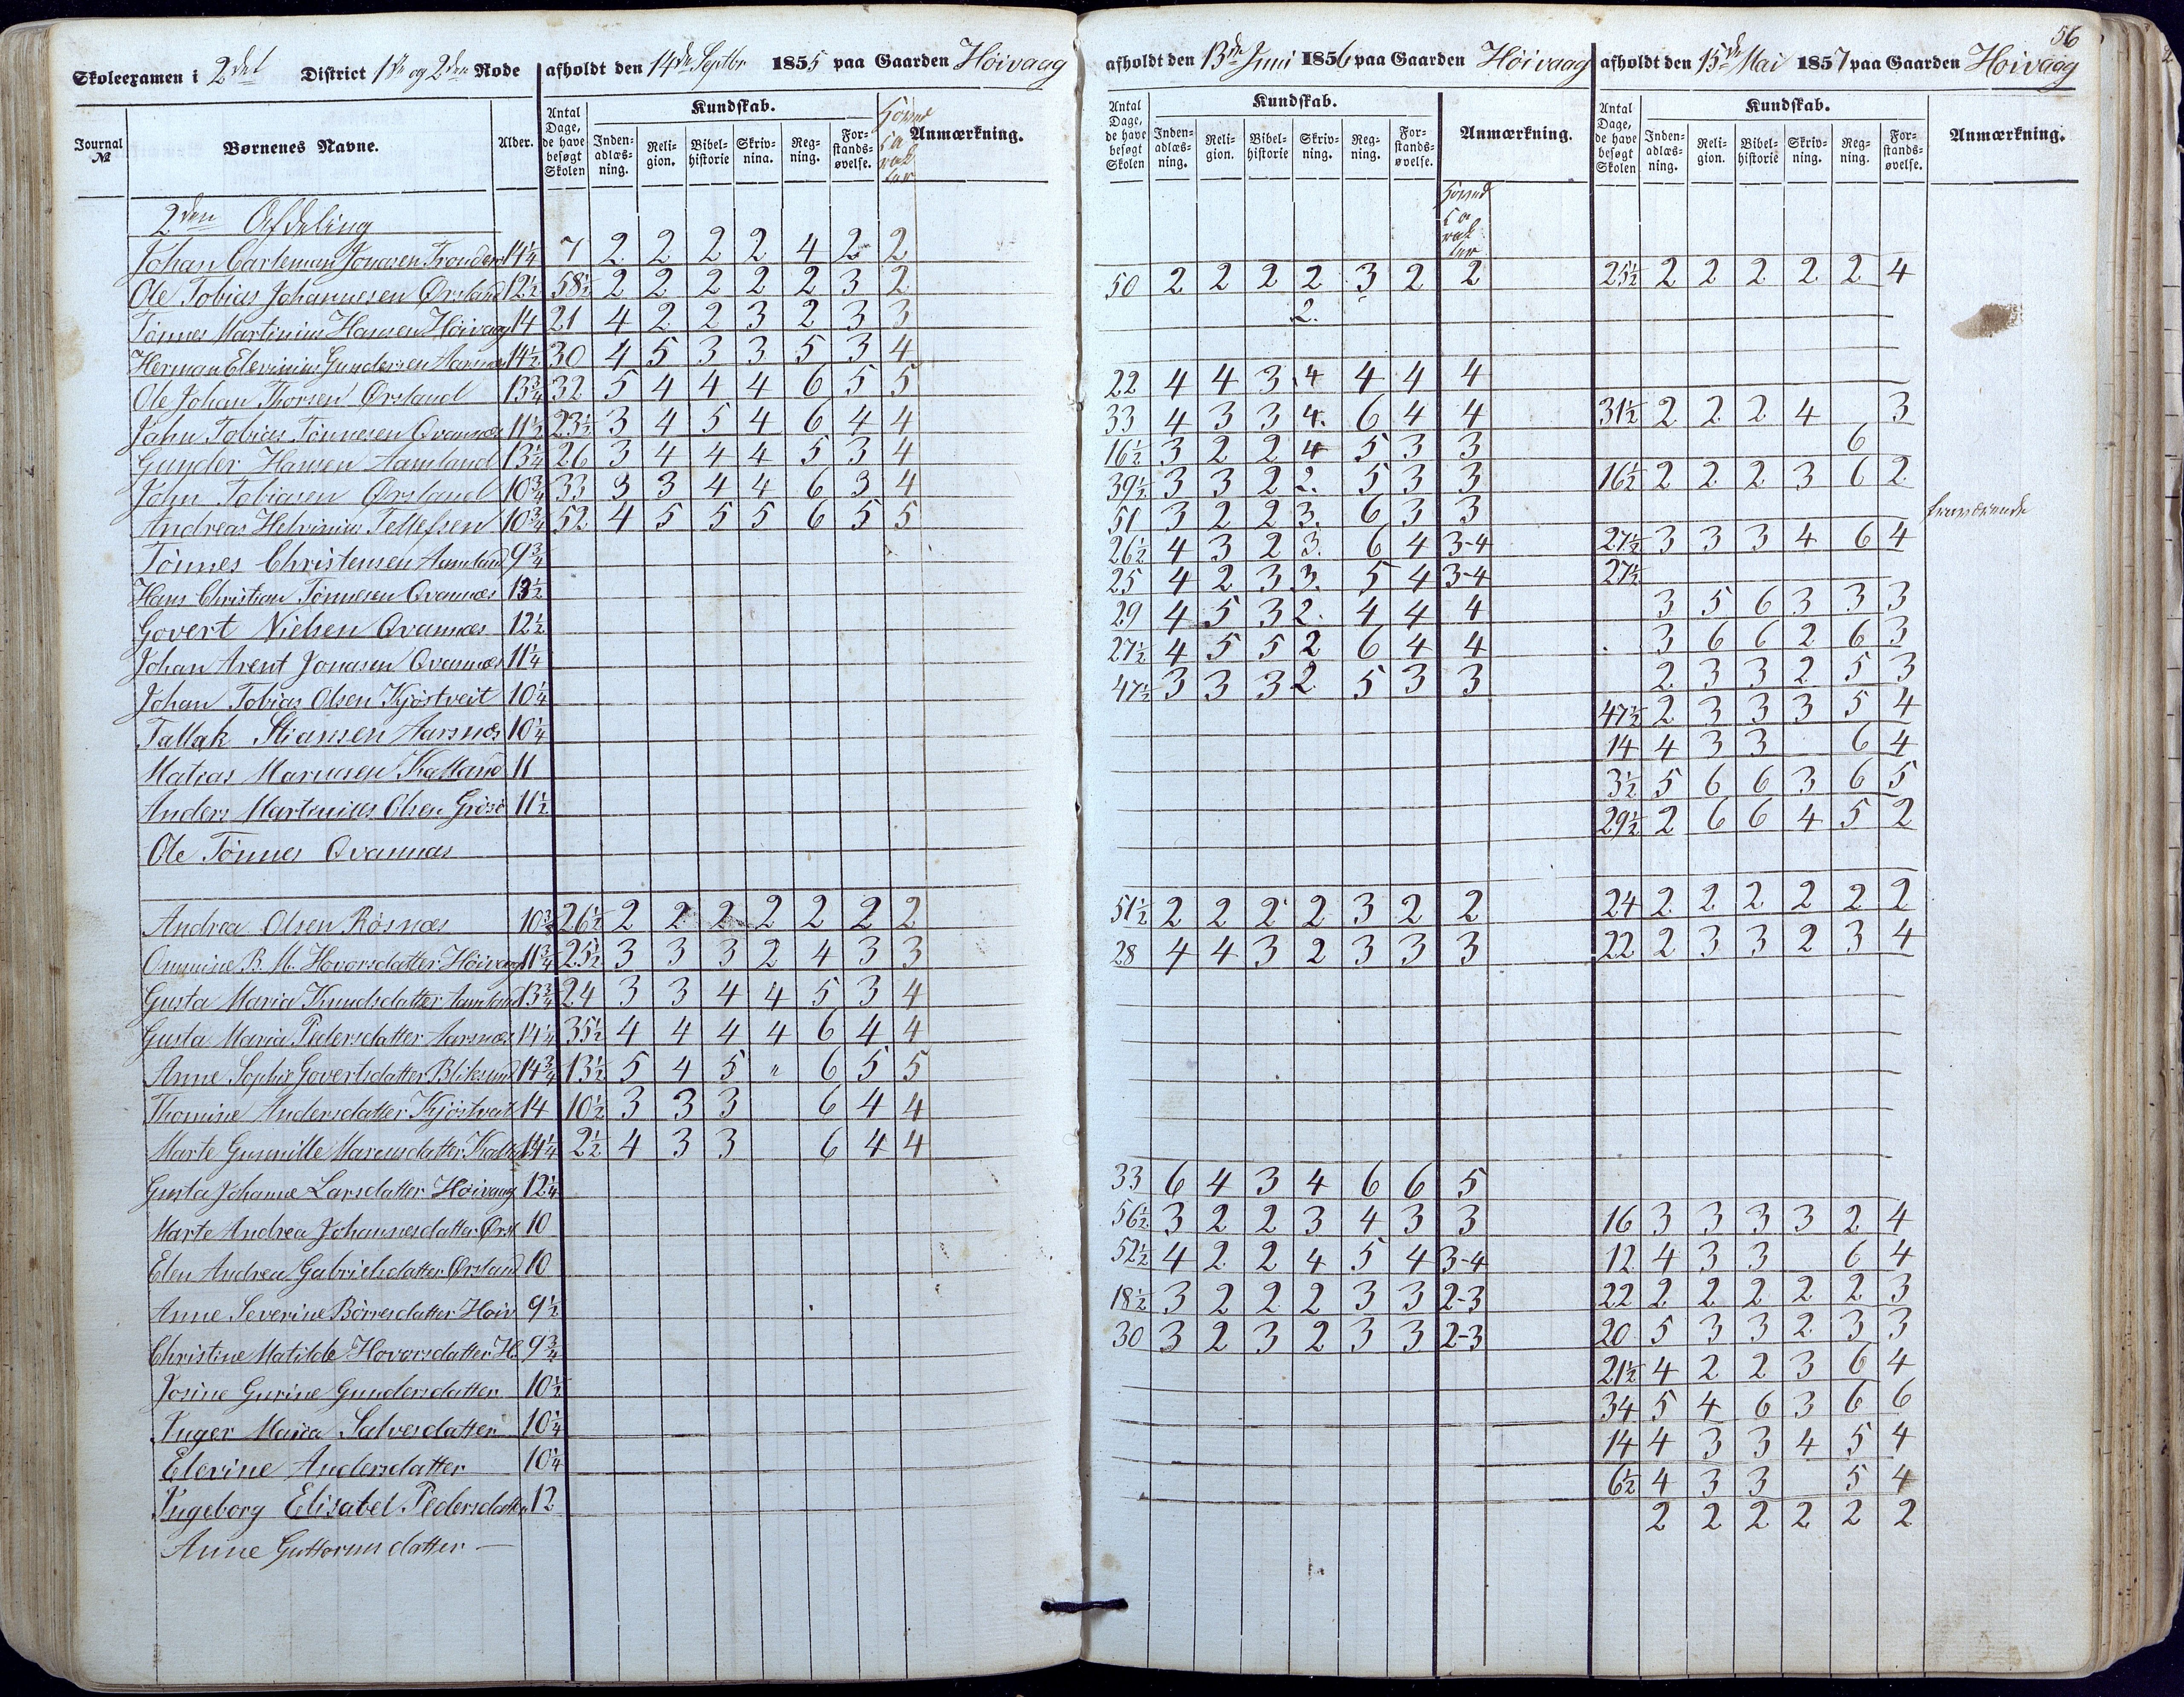 56
Skoleexamen i 2det District 1ste og 2den Rode afholdt den 14de Septbr 1855 paa Gaarden Höivaag
afholdt den 13de Juni 1856 paa Gaarden Höivaag
afholdt den 15de Mai 1857 paa Gaarden Höivaag
Journal № Børnenes Navne. Alder. Antal Dage, de have besøgt Skolen Kundskab. Inden-adlæs-ning. Reli-gion. Bibel-historie Skriv-ning. Reg-ning. For-stands-øvelse. Hoved Carakter Anmærkning.
Antal Dage, de have besøgt Skolen Kundskab. Inden-adlæs-ning. Reli-gion. Bibel-historie Skriv-ning. Reg-ning. For-stands-øvelse. Anmærkning. Hoved Carakter
Antal Dage, de have besøgt Skolen Kundskab. Inden-adlæs-ning. Reli-gion. Bibel-historie Skriv-ning. Reg-ning. For-stands-øvelse. Anmærkning.
2den Afdeling
Johan Carlemann Jonasen 14¼ 7 2 2 2 2 4 2 2
Ole Tobias Johannesen Ørsland 12½ 58½ 2 2 2 2 2 3 2 50 2 2 2 2 3 2 2 25½ 2 2 2 2 2 4
Tönnes Martinius Hansen Höivaag 14 21 4 2 2 3 2 3 3 2.
Herman Elevinius Gundersen 14½ 30 4 5 3 3 5 3 4
Ole Johan Thorsen Ørsland 13¾ 32 5 4 4 4 6 5 5 22 4 4 3 4 4 4 4
John Tobias Tönnesen Qvannæs 11½ 23½ 3 4 5 4 6 4 4 33 4 3 3 4. 6 4 4 31½ 2 2 2 4 3
Gunder Hansen Aamland 13¼ 26 3 4 4 4 5 3 4 16½ 3 2 2 4 5 3 3 6
John Tobiasen Ørsland 10¾ 33 3 3 4 4 6 3 4 39½ 3 3 2 2. 5 3 3 16½ 2 2 2 3 6 2
Andreas Helvinius Tellefsen 10¾ 52 4 5 5 5 6 5 5 51 3 2 2 3. 6 3 3 fraværende
Tönnes Christensen Aamland 9¾ 26½ 4 3 2 3. 6 4 3-4 27½ 3 3 3 4 6 4
Hans Christian Tönnesen Qvannæs 13½ 25 4 2 3 3. 5 4 3-4 27½
Govert Nielsen Qvannæs 12½ 29 4 5 3 2. 4 4 4 3 5 6 3 3 3
Johan Arent Jonasen Qvannæs 11¼ 27½ 4 5 5 2 6 4 4 3 6 6 2 6 3
Johan Tobias Olsen Kjöstveit 10¼ 47½ 3 3 3 2. 5 3 3 2 3 3 2 5 3
Tallak Stiansen Aarsnæs 10¼ 47½ 2 3 3 3 5 4
Matias Marcusen Kalland 11 14 4 3 3 6 4
Anders Martinius Olsen 11½ 3½ 5 6 6 3 6 5
Ole Tönnes Qvannæs 29½ 2 6 6 4 5 2
Andrea Olsen Rösnæs 10¾ 26½ 2 2 2 2 2 2 2 51½ 2 2 2 2 3 2 2 24 2 2 2 2 2 2
B. M. Hovorsdatter Höivaag 11¾ 25½ 3 3 3 2 4 3 3 28 4 4 3 2 3 3 3 22 2 3 3 2 3 4
Gusta Maria Knudsdatter Aamland 13¾ 24 3 3 4 4 5 3 4
Gusta Maria Pedersdatter Aarsnæs 14¼ 35½ 4 4 4 4 6 4 4
Anne Sophie Govertsdatter Bliksund 14¾ 13½ 5 4 5 " 6 5 5
Thomine Andersdatter Kjöstveit 14 10½ 3 3 3 6 4 4
Marte Gunnille Marcusdatter 14¼ 2½ 4 3 3 6 4 4
Gusta Johanne Larsdatter Höivaag 12¼ 33 6 4 3 4 6 6 5
Marte Andrea Johannesdatter Ørsl. 10 56½ 3 2 2 3 4 3 3 16 3 3 3 3 2 4
Elen Andrea Gabrielsdatter Ørsland 10 52½ 4 2 2 4 5 4 3-4 12 4 3 3 6 4
Anne Severine Börresdatter Höiv 9½ 18½ 3 2 2 2 3 3 2-3 22 2 2 2 2 2 3
Christine Matilde Hovorsdatter H. 9¾ 30 3 2 3 2 3 3 2-3 20 5 3 3 2 3 3
Josine Gurine Gundersdatter 10½ 21½ 4 2 2 3 6 4
Inger Maria Salvesdatter 10¼ 34 5 4 6 3 6 6
Elevine Andersdatter 10¼ 14 4 3 3 4 5 4
Ingeborg Elisabet Pedersdatter 12 6½ 4 3 3 5 4
Anne Guttormsdatter — 2 2 2 2 2 2